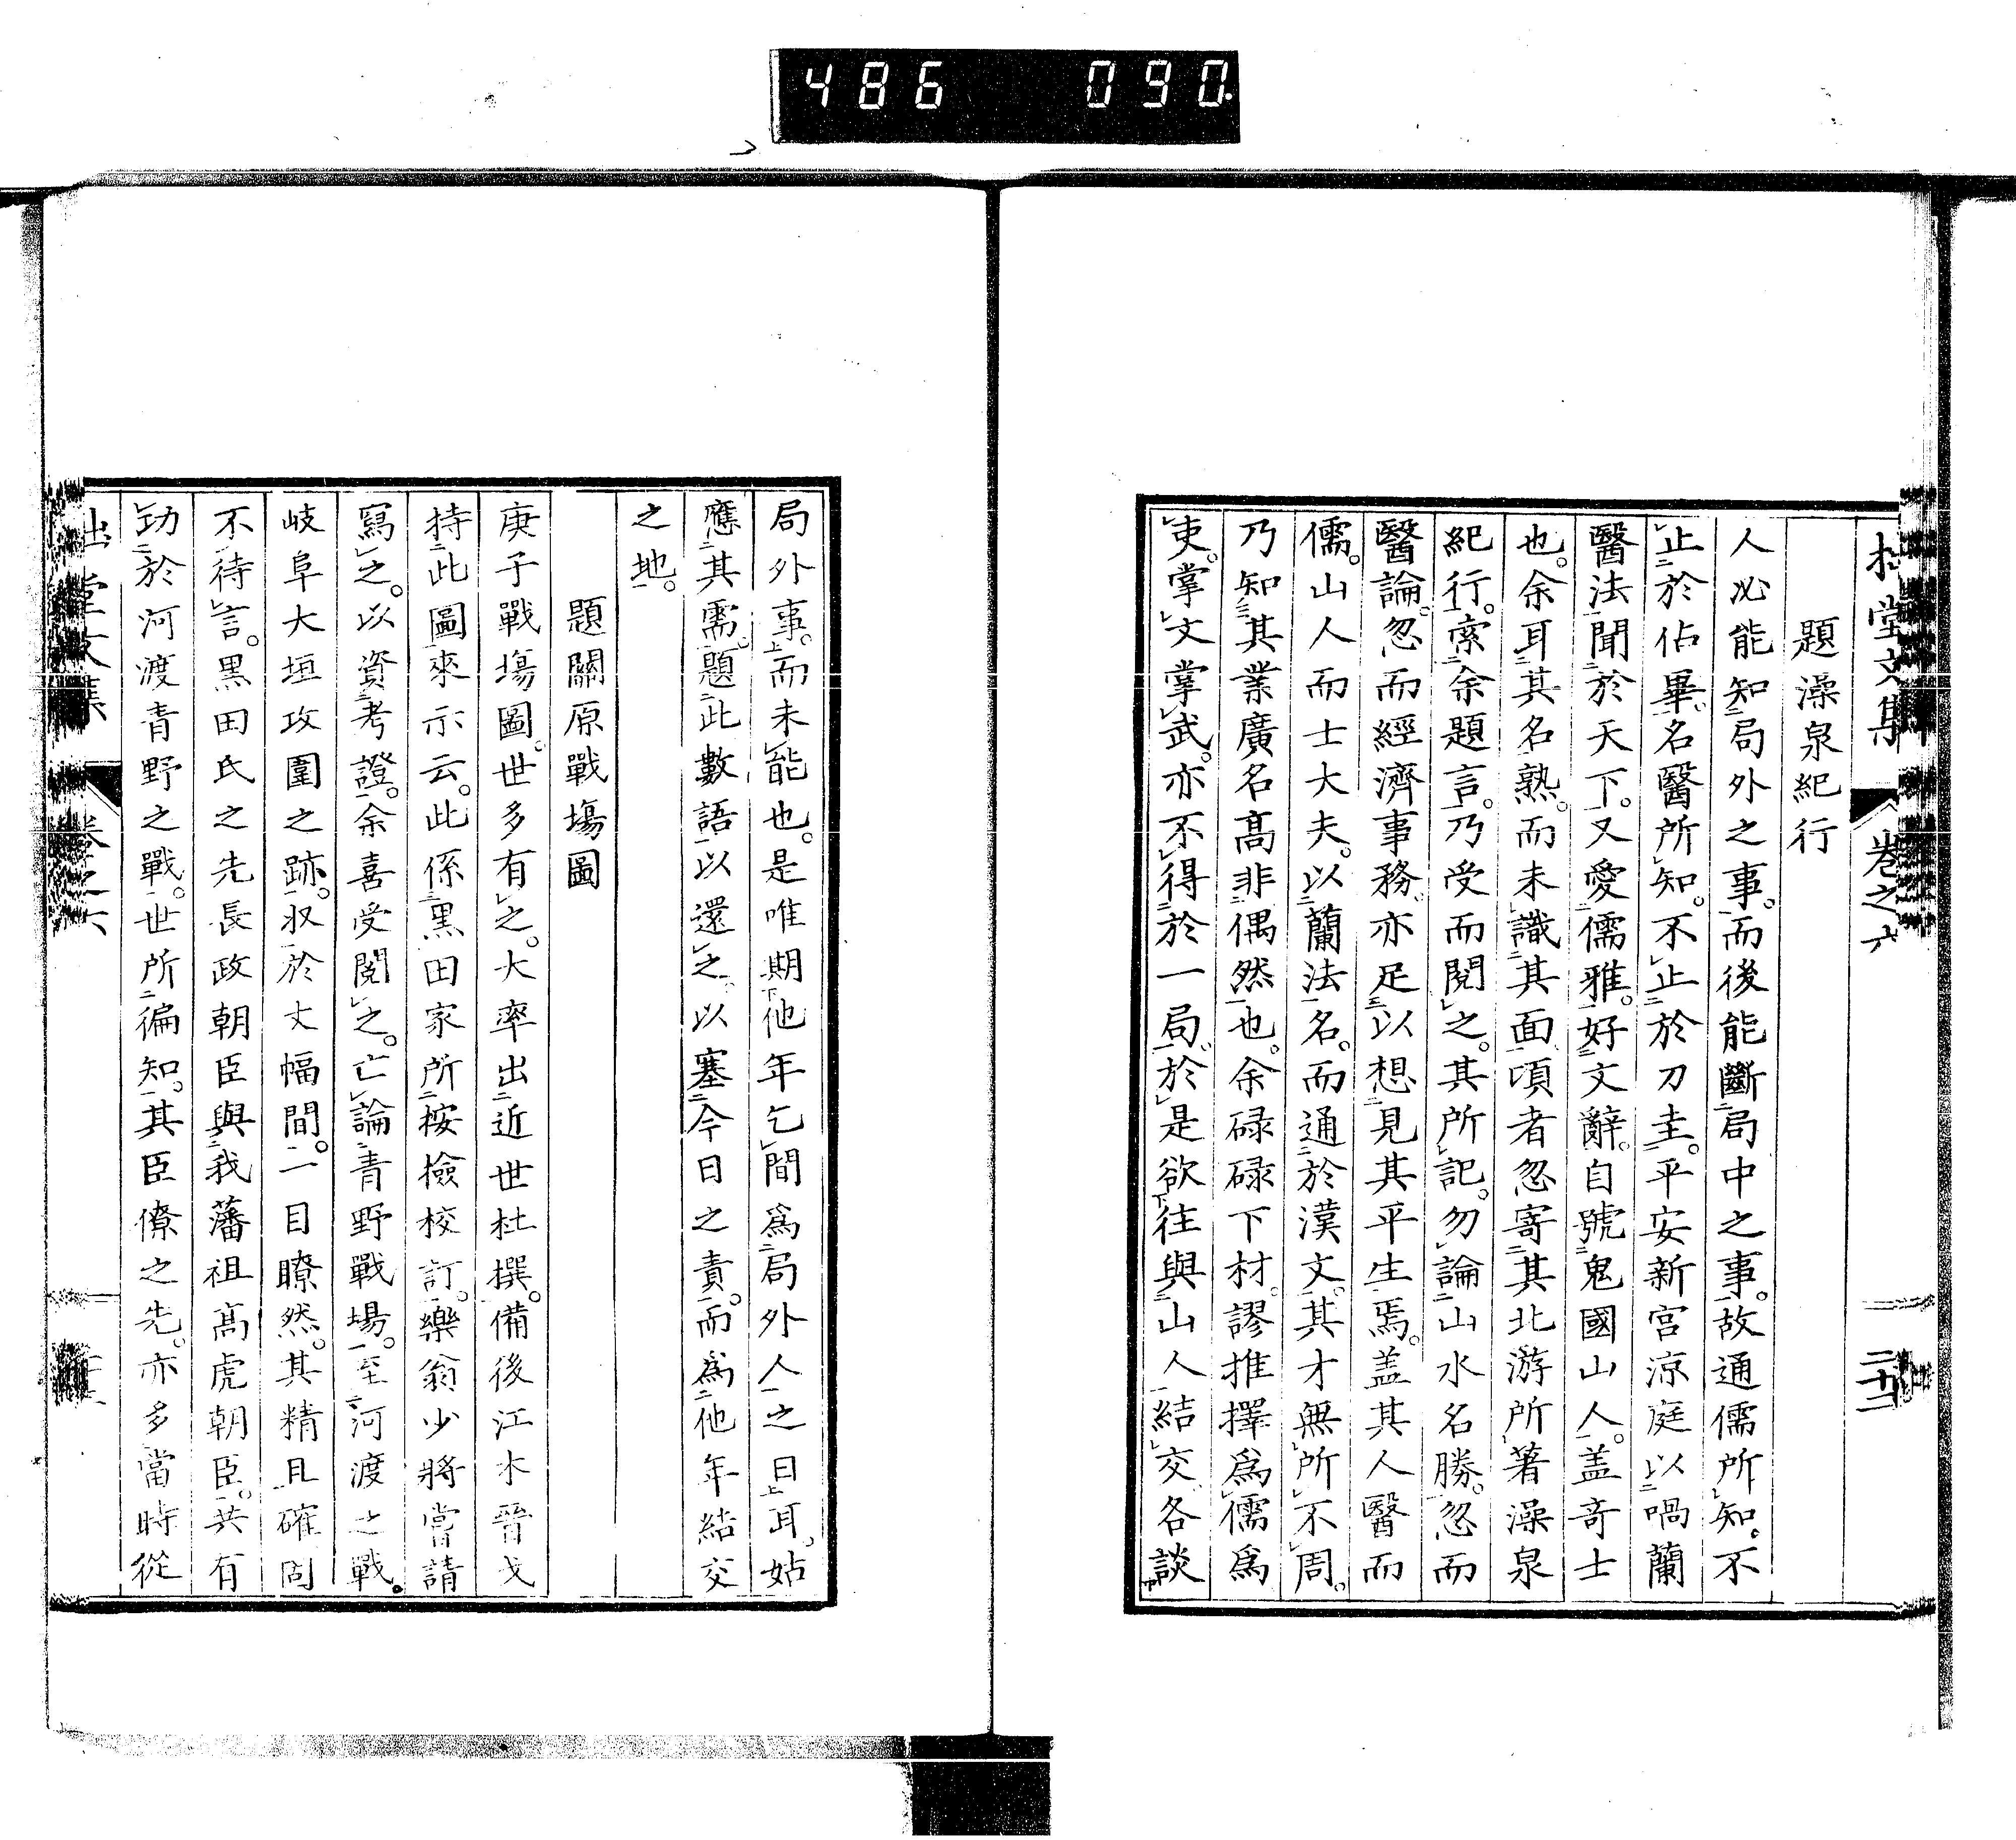 486 090
堂文集 卷之六 二十二
題澡泉紀行
人必能知局外之事。而後能斷局中之事。故通儒所知。不
止於佔畢。名醫所知。不止於刀圭。平安新宮涼庭以喎蘭
醫法聞於天下。又愛儒雅。好文辭。自號鬼國山人。盖奇士
也。余耳其名熟。而未識其面。頃者忽寄其北游所著澡泉
紀行。索余題言。乃受而閱之。其所記。勿論山水名勝。忽而
醫論。忽而經濟事務。亦足以想見其平生焉。盖其人醫而
儒。山人而士大夫。以蘭法名。而通於漢文。其才無所不周。
乃知其業廣名高非偶然也。余碌碌下材。謬推擇爲儒爲
吏。掌文掌武。亦不得於一局。於是欲往與山人結交各談
局外事。而未能也。是唯期他年乞間爲局外人之日耳。姑
應其需。題此數語以還之。以塞今日之責。而爲他年結交
之地。
題關原戰場圖
庚子戰場圖。世多有之。大率出近世杜撰。備後江木晉戈
持此圖來示云。此係黑田家所按檢校訂。樂翁少將嘗請
寫之。以資考證。余喜受閱之。亡論青野戰場。至河渡之戰。
岐阜大垣攻圍之跡。収於丈幅間。一目瞭然。其精且確固
不待言。黑田氏之先長政朝臣與我藩祖高虎朝臣。共有
功於河渡青野之戰。世所徧知。其臣僚之先。亦多當時從
堂文集 卷之六